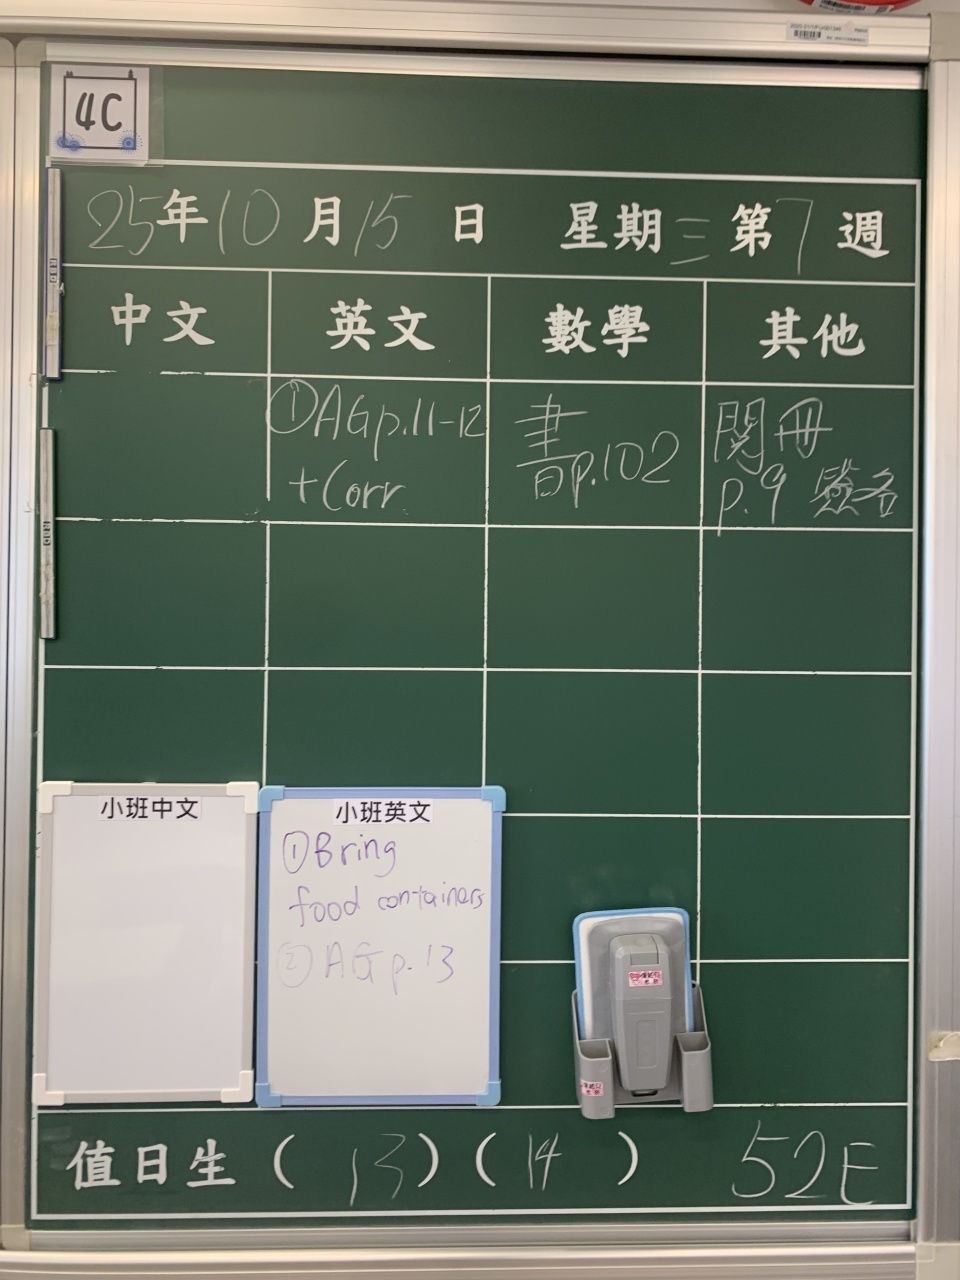 4C
25年10月15日 星期三 第7週
中文 英文 數學 其他
①AG p.11-12
+Corr.
書p.102
閱冊
p.9 簽名
小班中文
小班英文
①Bring
food containers
②AG p.13
值日生 ( 13 ) ( 14 ) 52E